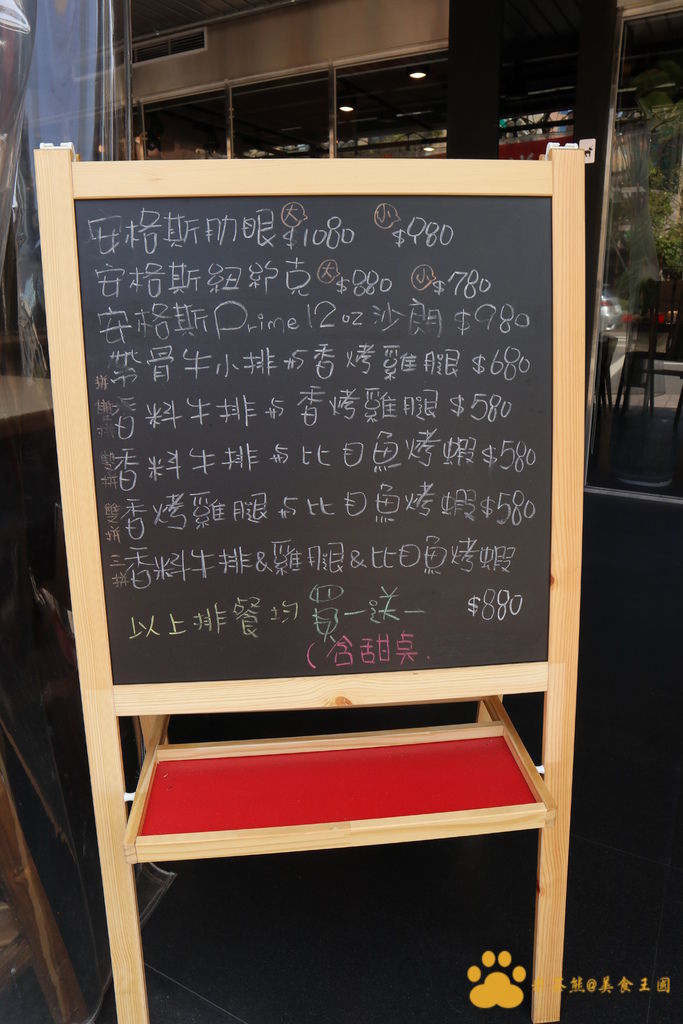 安格斯肋眼 大 $1080 小 $980
安格斯紐約克 大 $880 小 $780
安格斯Prime12oz沙朗 $980
帶骨牛小排与香烤雞腿 $680
雙拼 香料牛排与香烤雞腿 $580
雙拼 香料牛排与比目魚烤蝦 $580
雙拼 香烤雞腿与比目魚烤蝦 $580
三拼 香料牛排&雞腿&比目魚烤蝦
$880
以上排餐均買一送一
(含甜桌
熊@美食王國